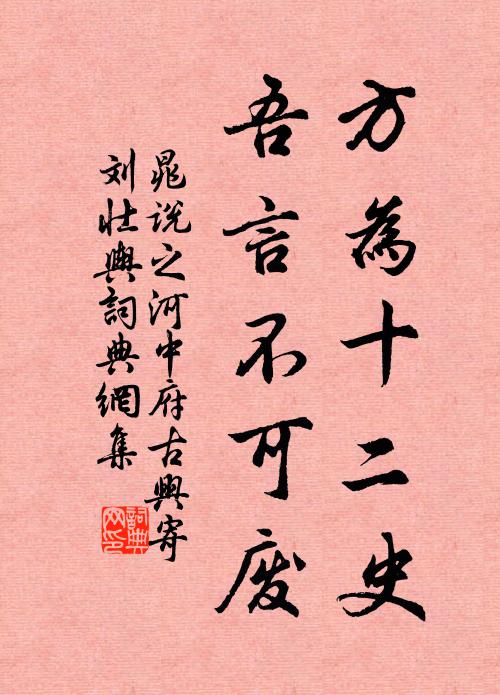 方為十二史
吾言不可废
晁说之河中府古興寄
刘壮輿詞典網集
詞典網印